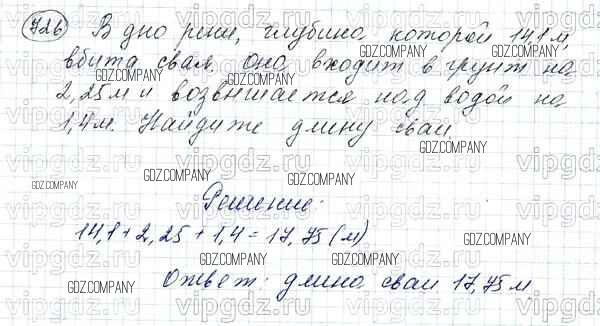 726 В дно реки, глубина которой 14,1 м,
вбита свая. Она входит в грунт на
2,25 м и возвышается над водой на
1,4 м. Найдите длину сваи.
Решение:
14,1 + 2,25 + 1,4 = 17,75 (м)
Ответ: длина сваи 17,75 м.